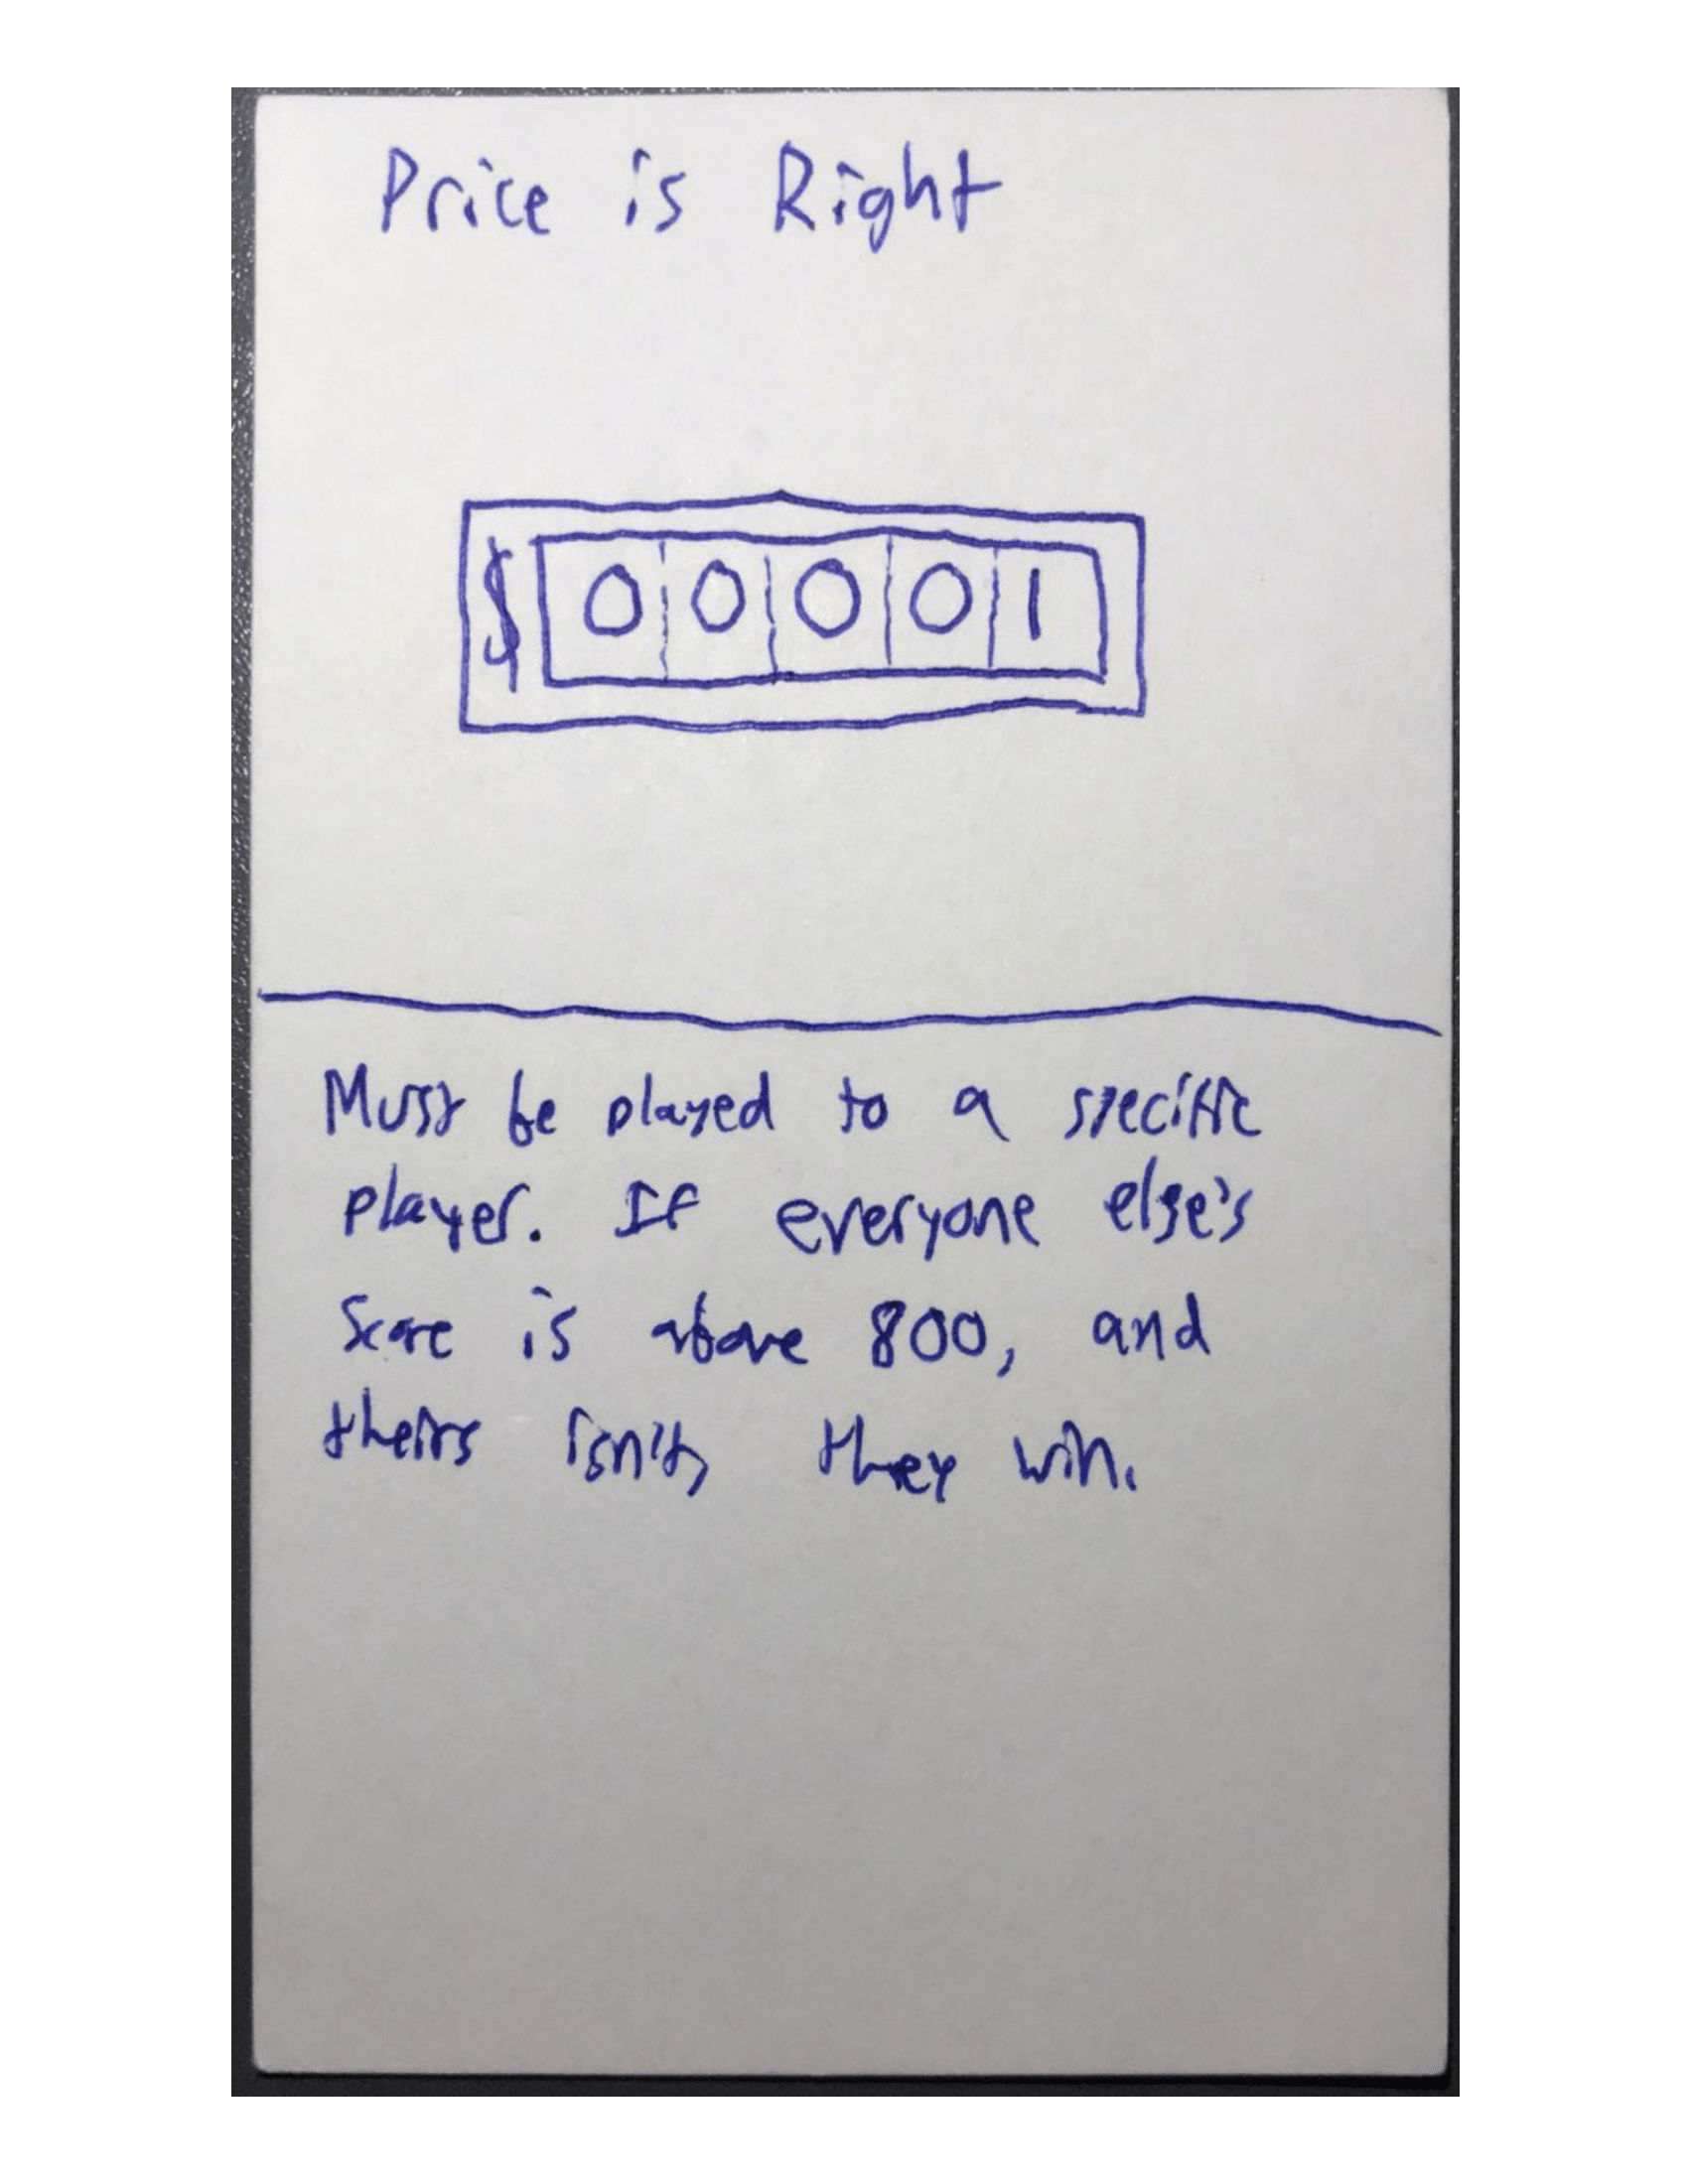 Price is Right
$ 0 0 0 0 1
Must be played to a specific
player. If everyone else's
Score is above 800, and
theirs isn't, they win.